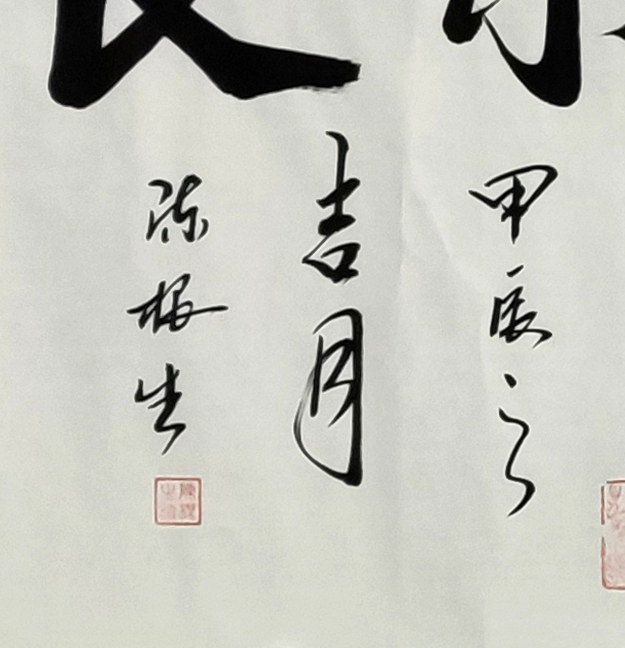 甲辰之
吉月
陈根生